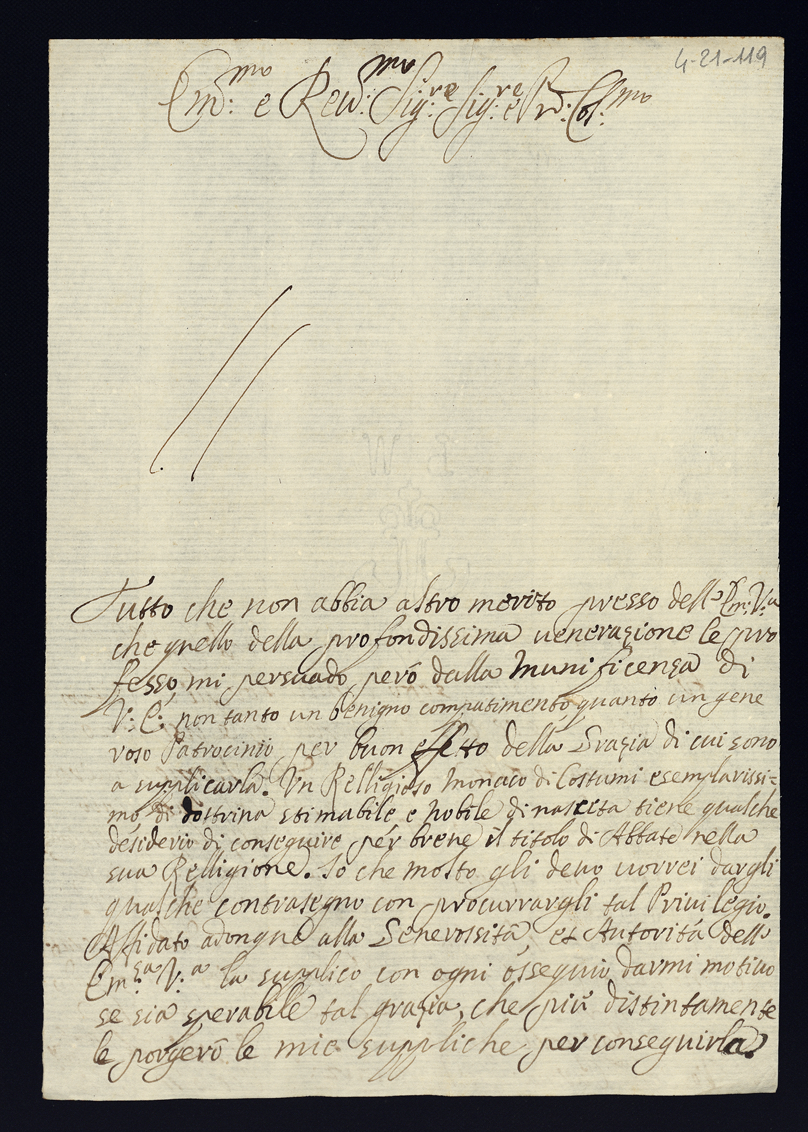 4-21-119
Em̃:mo e Reu:mo Sig:re Sig:re e Prõ: Col:mo
Tutto che non abbia altro merito presso dell'Em: V:a
che quello della profondissima uenerazione le pro
fesso, mi persuado però dalla munificenza di
V: E: non tanto un benigno compatimento quanto un gene
roso Patrocinii per buon effetto della Grazia di cui sono
a supplicarla. Un Relligioso Monaco di Costumi esemplarissi=
mo, di dottrina stimabile e nobile di nascita tiene qualche
desiderio di conseguire per breue il titolo di Abbate nella
sua Relligione. Io che molto gli deuo uorrei dargli
qualche contrasegno con procurrargli tal Priuilegio.
Affidato adonque alla Generossità, et Autorità dell'
Em:za V:a la supplico con ogni ossequio darmi motiuo
se sia sperabile tal grazia, che più distintamente
le porgerò le mie suppliche per conseguirla.
B W